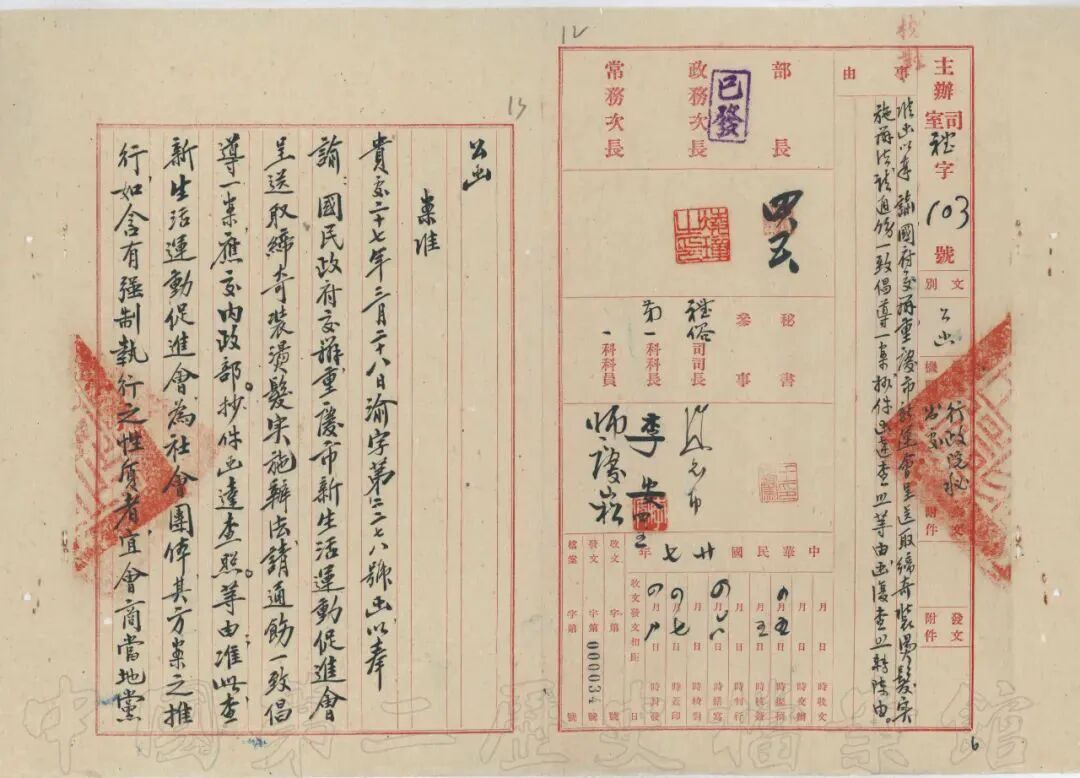 12
校對
主辦司室 禮字 103 號
文別 公函
行政院秘書處
附件
發文附件
事由
准函以奉 諭國府交辦重慶市新運會呈送取締奇裝燙髮實
施辦法請通飭一致倡導一案抄件函達查照等由函復查照轉陳由。
部長
政務次長
常務次長
已發
四 五
秘書
參事
禮俗司司長
第一科科長
一科科員
李安 四 五
師慶崧
中華民國廿七年
月 日 時收文
月 日 時交辦
四月五日 時擬稿
月五日 時核簽
月 日 時判行
四月六日 時繕寫
月 日 時校對
四月七日 時蓋印
四月八日 時封發
收文發文相距 日
收文 字第 號
發文 字第 000034 號
檔案 字第 號
13
公函
案准
貴處二十七年三月二十八日渝字第二二七八號函以奉
諭：國民政府交辦重慶市新生活運動促進會
呈送取締奇裝燙髮實施辦法請通飭一致倡
導一案，應交內政部。抄件函達查照。等由，准此，查
新生活運動促進會為社會團体其方案之推
行，如含有强制執行之性質者，宜會商當地黨
6
中國第二歷史檔案館